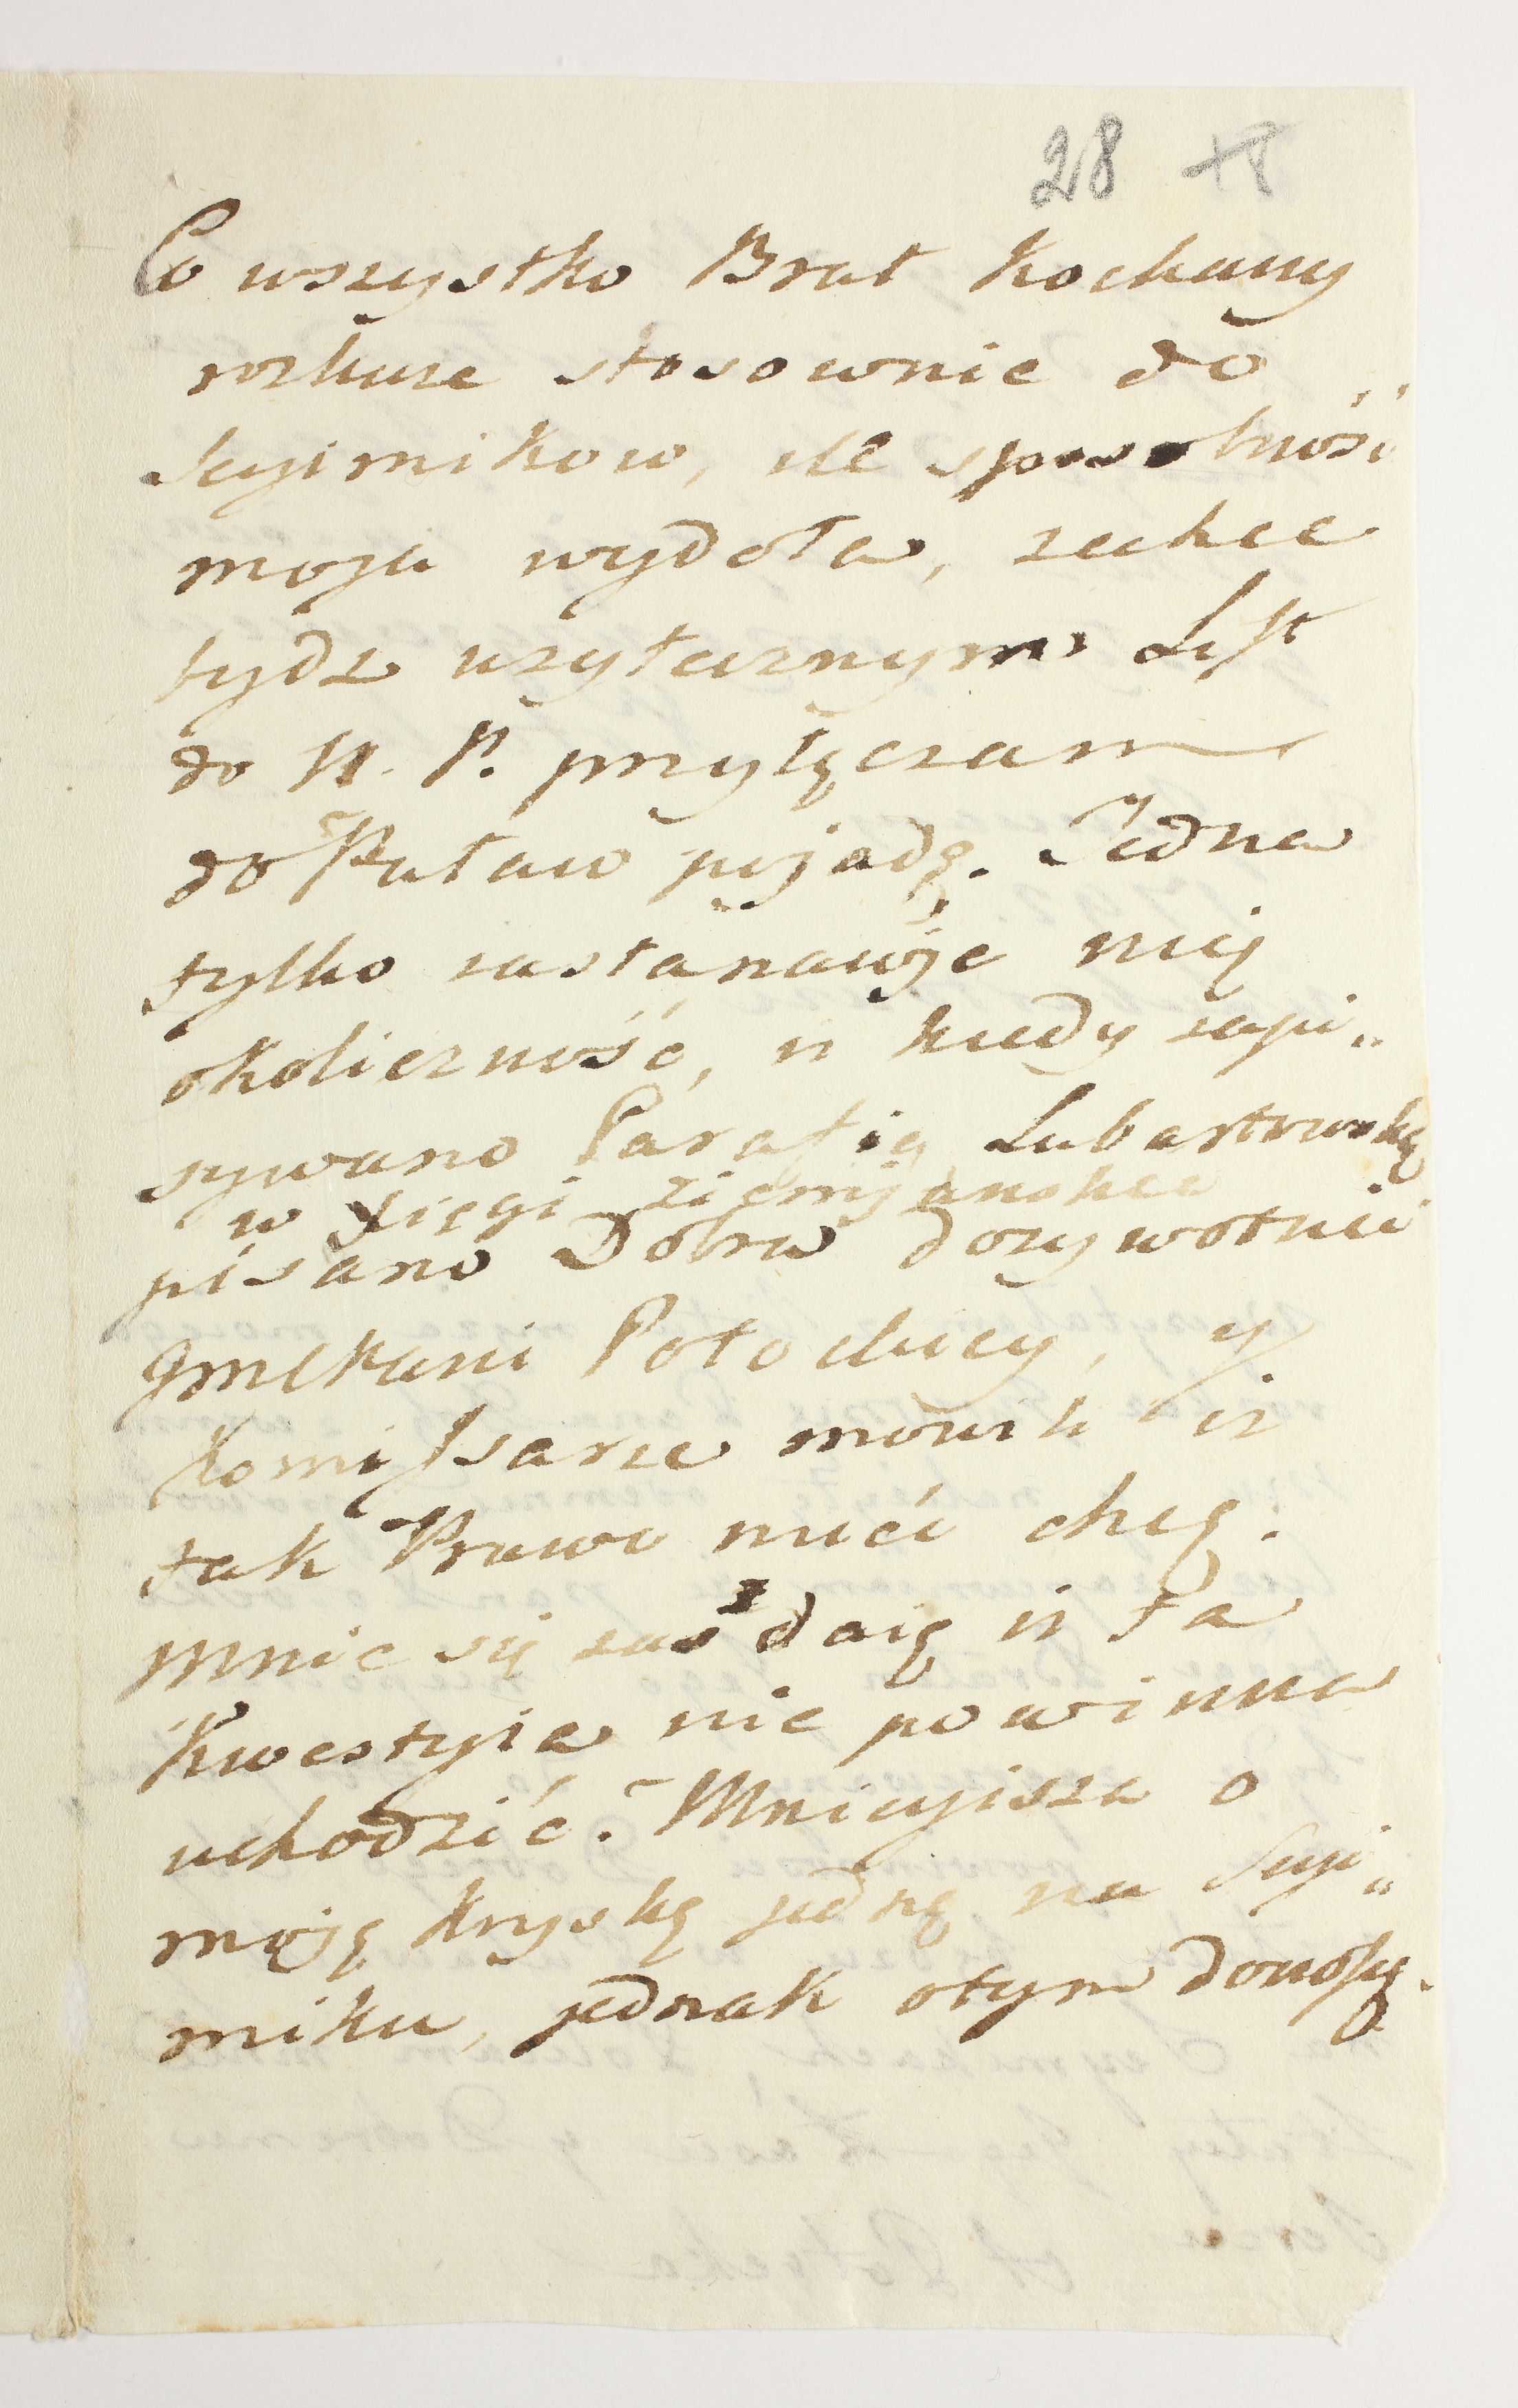 28
Co wszystko Brat Kochany
rozkaze stosownie do
Seyimikow, ile sposobność
moja wydoła, zechce
bydz uzytecznym List
do K. P. przyłączam
do Puław pojadę. Jedna
tylko zastanawije mię
okoliczność, iz kiedy zapi„
sywano Parafię Lubartowską
w Xięgi ziemijanskie
pisano Dobra dozywotnie
Potockiey, y
Komissarze mówili iz
tak Prawo mieć chcę:
mnie się zas zdaię iz ta
Kwestyia nie powinna
uchodzić. Mnieyisza o
moję kryskę jednę na Seyi„
miku, jednak otym donoszę.